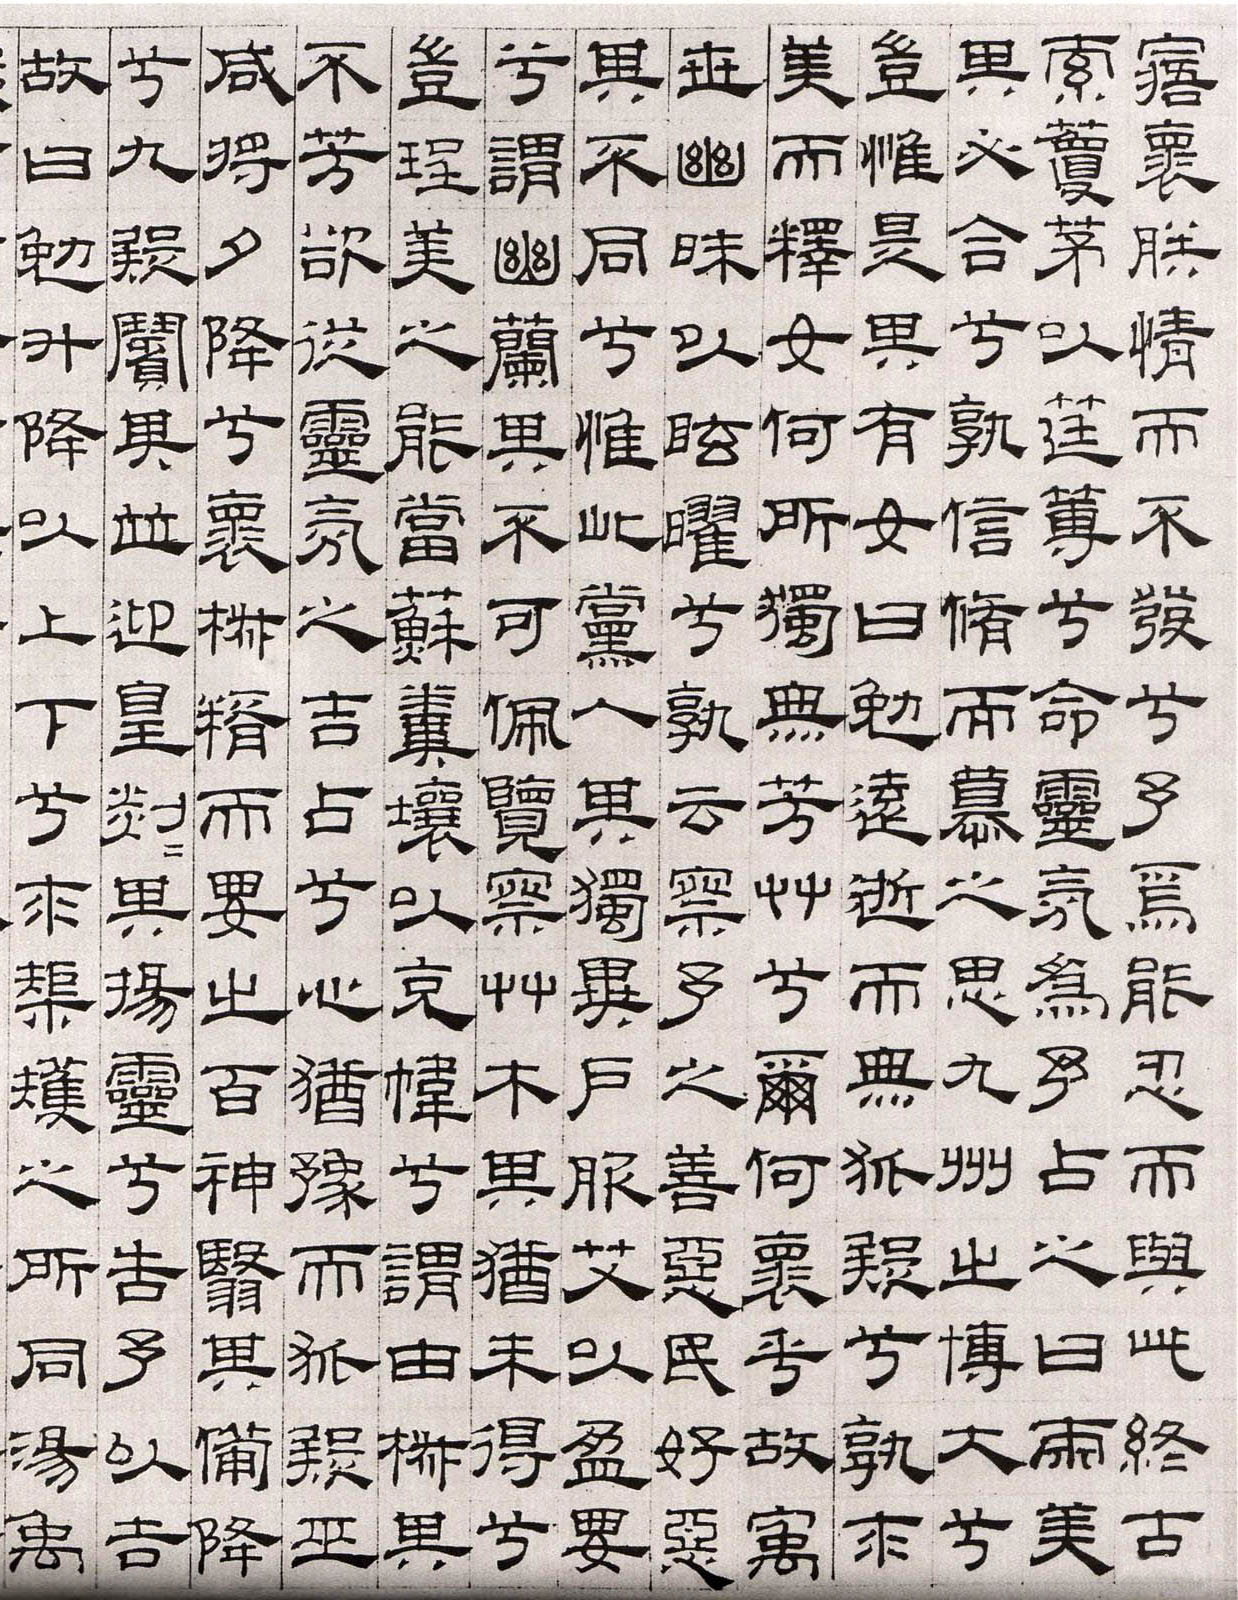 寤褱朕情而不發兮予焉能忍而與此終古
索藑茅以筳篿兮命靈氛爲予占之曰兩美
其必合兮孰信脩而慕之思九州之博大兮
豈惟是其有女曰勉遠逝而無狐疑兮孰求
美而釋女何所獨無芳艸兮爾何褱乎故㝢
世幽昧以眩曜兮孰云察予之善惡民好惡
其不同兮惟此黨人其獨異戶服艾以盈要
兮謂幽蘭其不可佩覽察艸木其猶未得兮
豈珵美之能當蘇糞壤以充幃兮謂申椒其
不芳欲從靈氛之吉占兮心猶豫而狐疑巫
咸將夕降兮褱椒糈而要之百神翳其備降
兮九疑繽其並迎皇剡〻其揚靈兮告予以吉
故曰勉升降以上下兮求榘矱之所同湯禹